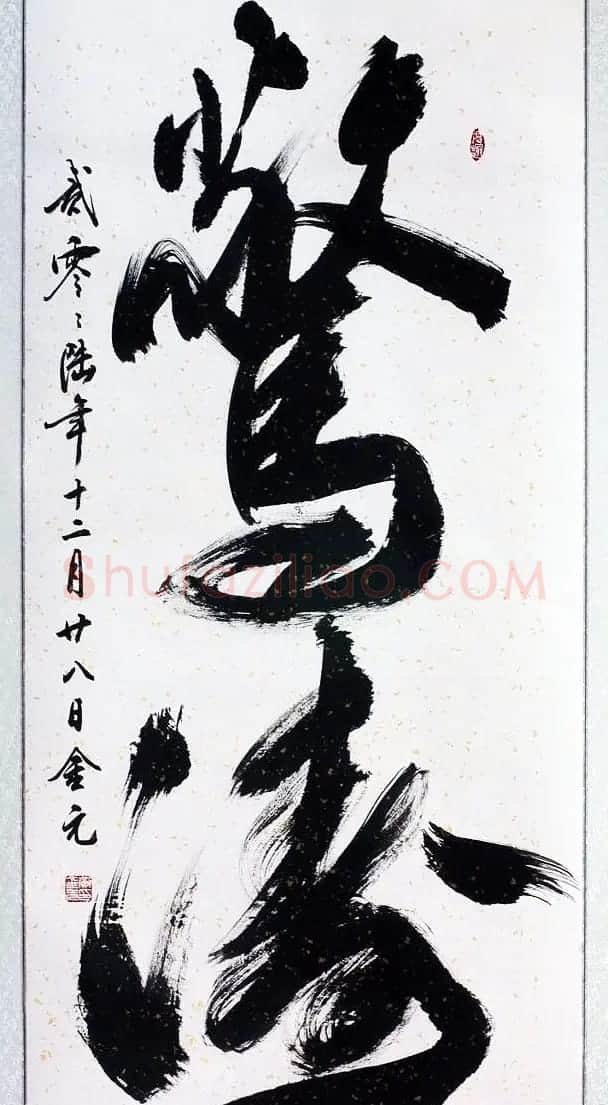 驚濤
貳零零陸年十二月廿八日金元
Shufaziliao.COM